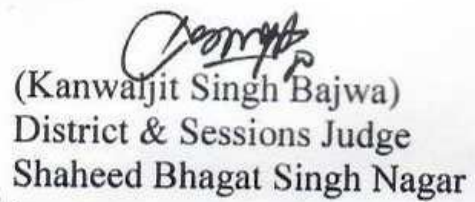 (Kanwaljit Singh Bajwa)
District & Sessions Judge
Shaheed Bhagat Singh Nagar